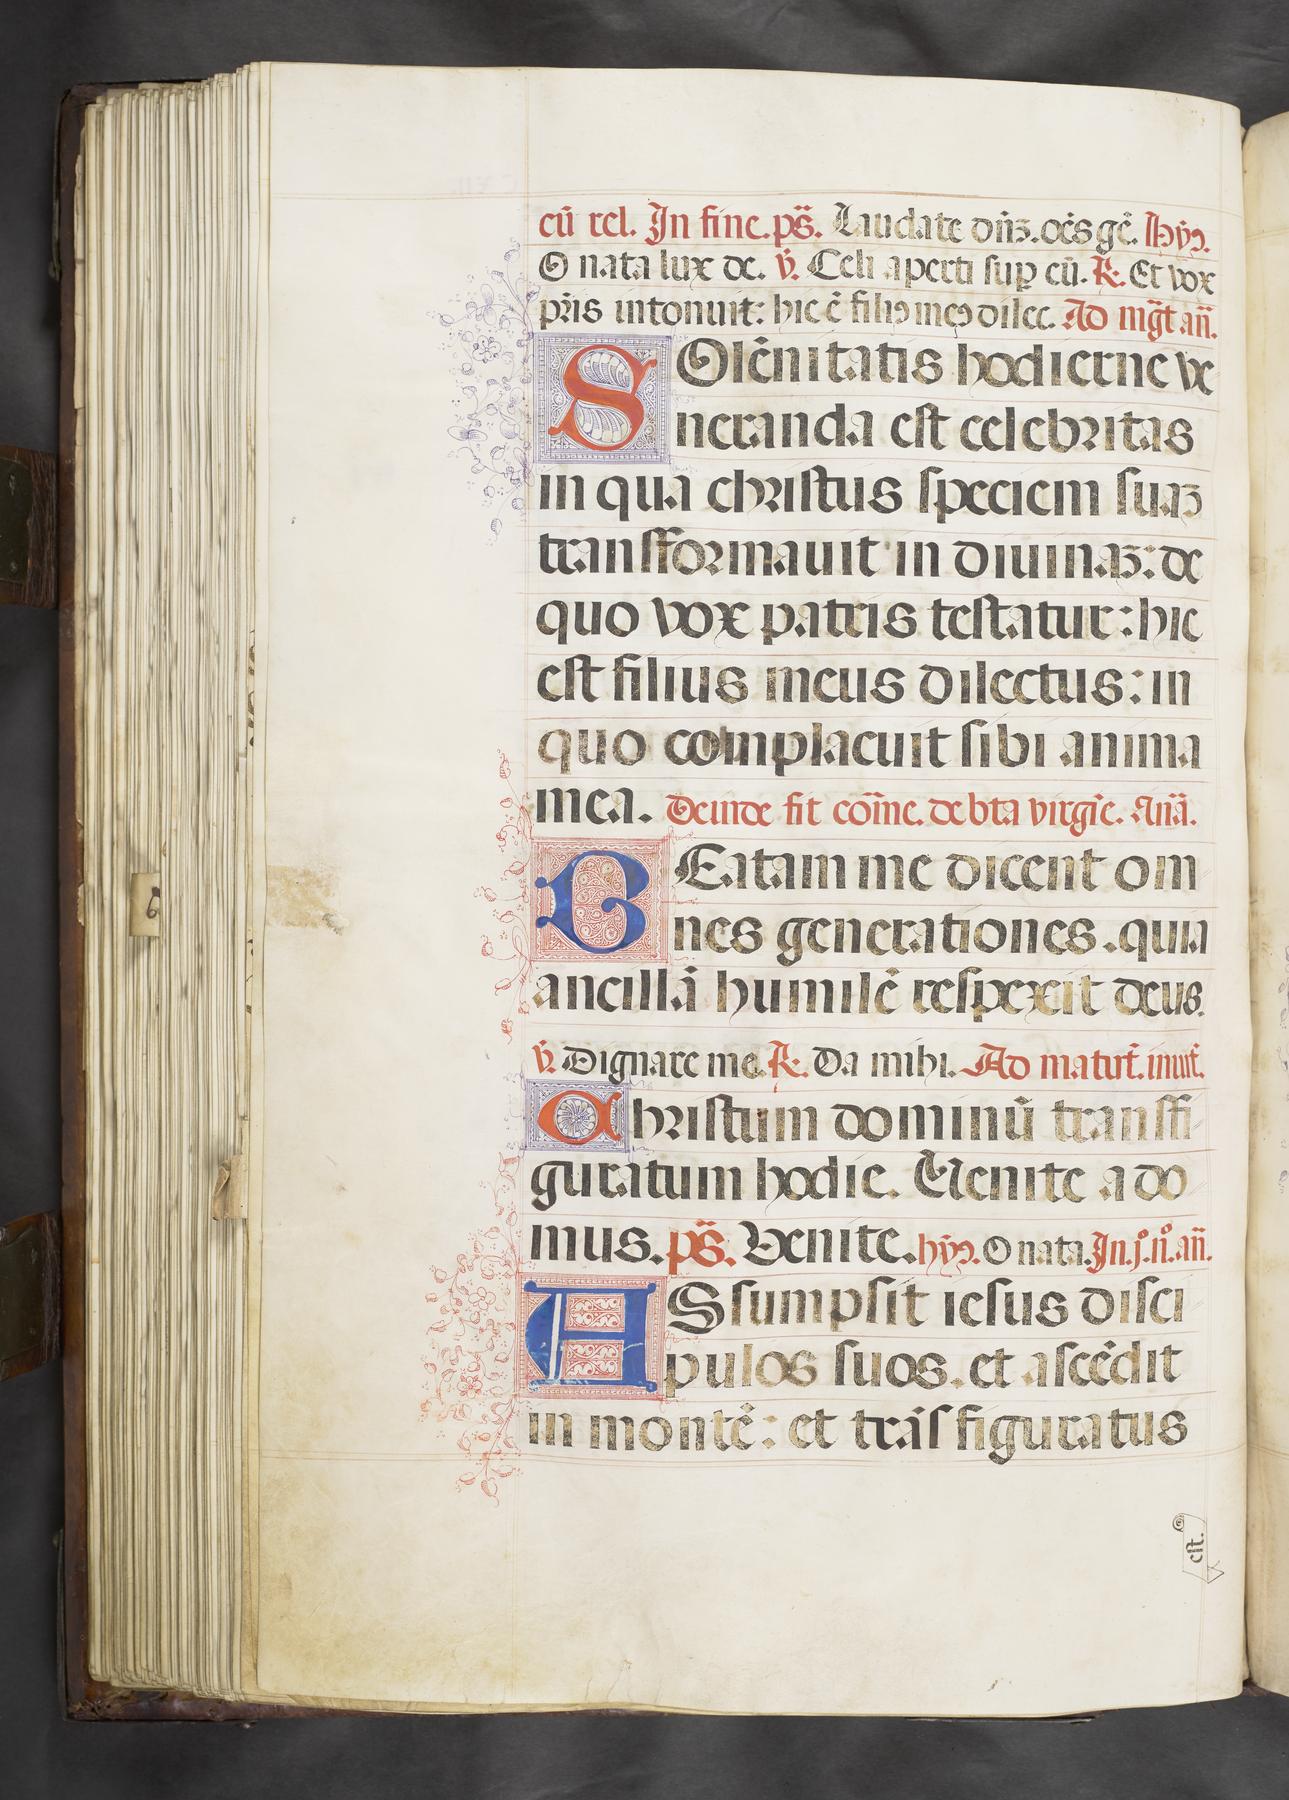 cū rel. In fine. ps̄. Laudate dn̄ȝ. oēs gē. Hyꝰ.
O nata lux de. v̄. Celi aperti suꝑ eū. ℟. Et vox
pr̄is intonuit: hic ē filiꝰ meꝰ dilec. Ad mḡt an̄.
SOlēnitatis hodierne ve
neranda est celebritas
in qua christus speciem suaȝ
transformauit in diuinaȝ: de
quo vox patris testatur: hic
est filius meus dilectus: in
quo complacuit sibi anima
mea. Deinde fit com̄e. de bta virgīe. Anā.
BEatam me dicent om
nes generationes. quia
ancillā humilē respexit deus.
v̄. Dignare me ℟. Da mihi. Ad matut̄. inuit̄.
Christum dominū transfi
guratum hodie. Uenite ado
mus. ps̄. Venite. hyꝰ. O nata. In. j.º n.º an̄.
ASsumpsit iesus disci
pulos suos. et ascēdit
in montē: et trāsfiguratus
est.
6